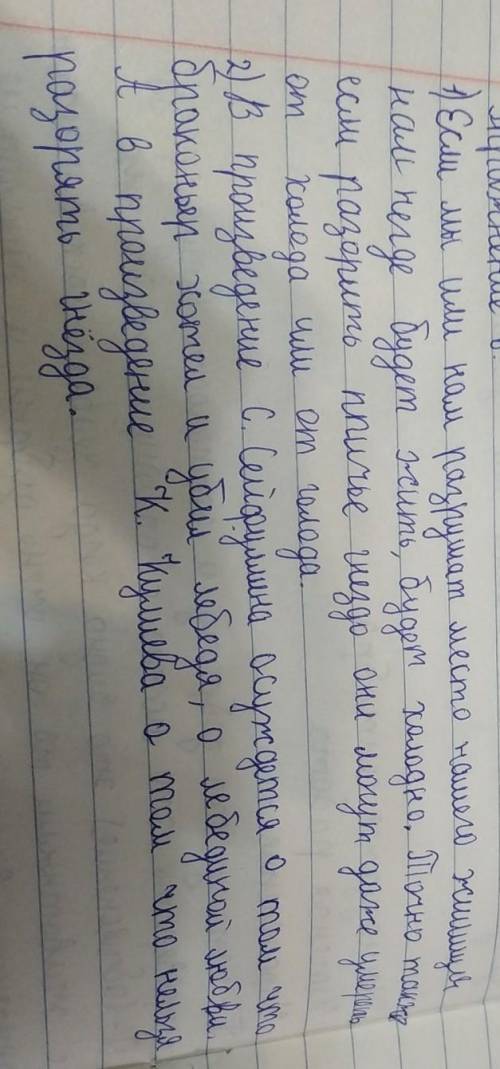 1) Если мы или нам разрушат место нашего жилища
нам негде будет жить, будет холодно. Точно также
если разорить птичье гнездо они могут даже умереть
от холода или от голода.
2) В произведение С. Сейфулина осуждется о том что
браконьер хотел и убил лебедя, о лебединой любви.
А в произведение К. Кулиева о том что нельзя
разорять гнёзда.